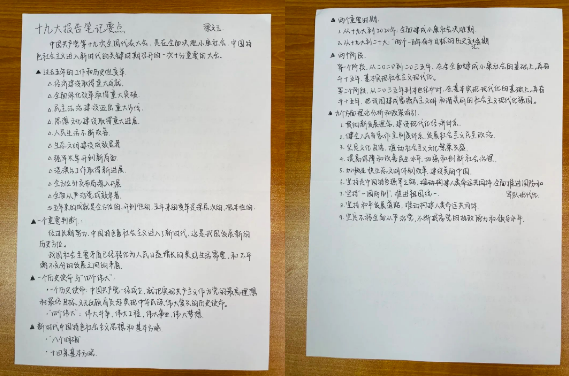 十九大报告笔记要点
中国共产党第十九次全国代表大会,是在全面决胜小康社会、中国特
色社会主义进入新时代的关键时期召开的一次十分重要的大会。
▲过去五年的工作和历史性变革
△经济建设取得重大成就
△全面深化改革取得重大突破
△民主法治建设迈出重大步伐
△思想文化建设取得重大进展
△人民生活不断改善
△生态文明建设成效显著
△强军兴军开创新局面
△港澳台工作取得新进展
△全方位外交布局深入展开
△全面从严治党成效卓著
▲一个重要判断:
经过长期努力,中国特色社会主义进入了新时代,这是我国发展新的
历史方位。
我国社会主要矛盾已经转化为人民日益增长的美好生活需要和不平
衡不充分的发展之间的矛盾。
▲一个历史使命与“四个伟大”
“四个伟大”:伟大斗争,伟大工程,伟大事业,伟大梦想
▲新时代中国特色社会主义思想和基本方略
·“八个明确”
·十四条基本方略
▲两个重要时期
1.从现在到2020年,全面建成小康社会决胜期
2.从十九大到二十大,“两个一百年”奋斗目标的历史交汇期
▲两个阶段
第一个阶段,从二〇二〇到二〇三五年,在全面建成小康社会的基础上,再奋
斗十五年,基本实现社会主义现代化。
第二个阶段,从二〇三五年到本世纪中叶,在基本实现现代化的基础上,再奋
斗十五年,把我国建成富强民主文明和谐美丽的社会主义现代化强国。
1.贯彻新发展理念,建设现代化经济体系
2.健全人民当家作主制度体系,发展社会主义民主政治
3.坚定文化自信,推动社会主义文化繁荣兴盛
4.提高保障和改善民生水平,加强和创新社会治理
5.加快生态文明体制改革,建设美丽中国
7.坚持“一国两制”,推进祖国统一
8.坚持和平发展道路,推动构建人类命运共同体
9.坚定不移全面从严治党,不断提高党的执政能力和领导水平